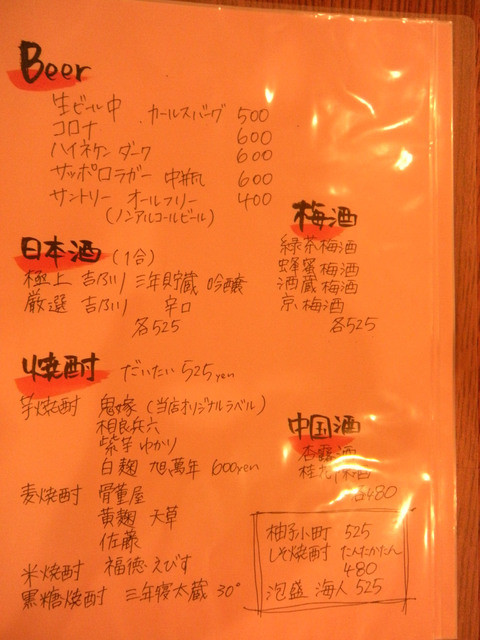 Beer
生ビール中 カールスバーグ 500
コロナ 600
ハイネケン ダーク 600
サッポロラガー 中瓶 600
サントリー オールフリー 400
(ノンアルコールビール)
日本酒 (1合)
極上 吉乃川 三年貯蔵 吟醸
厳選 吉乃川 辛口
各525
焼酎 だいたい 525yen
芋焼酎 鬼嫁 (当店オリジナルラベル)
相良兵六
紫芋 ゆかり
白麹 旭萬年 600yen
麦焼酎 骨董屋
黄麹 天草
佐藤
米焼酎 福徳えびす
黒糖焼酎 三年寝太蔵 30°
梅酒
緑茶梅酒
蜂蜜梅酒
酒蔵梅酒
京梅酒
各525
中国酒
杏露酒
桂花陳酒
各480
柚子小町 525
しそ焼酎 たんたかたん
480
泡盛 海人 525